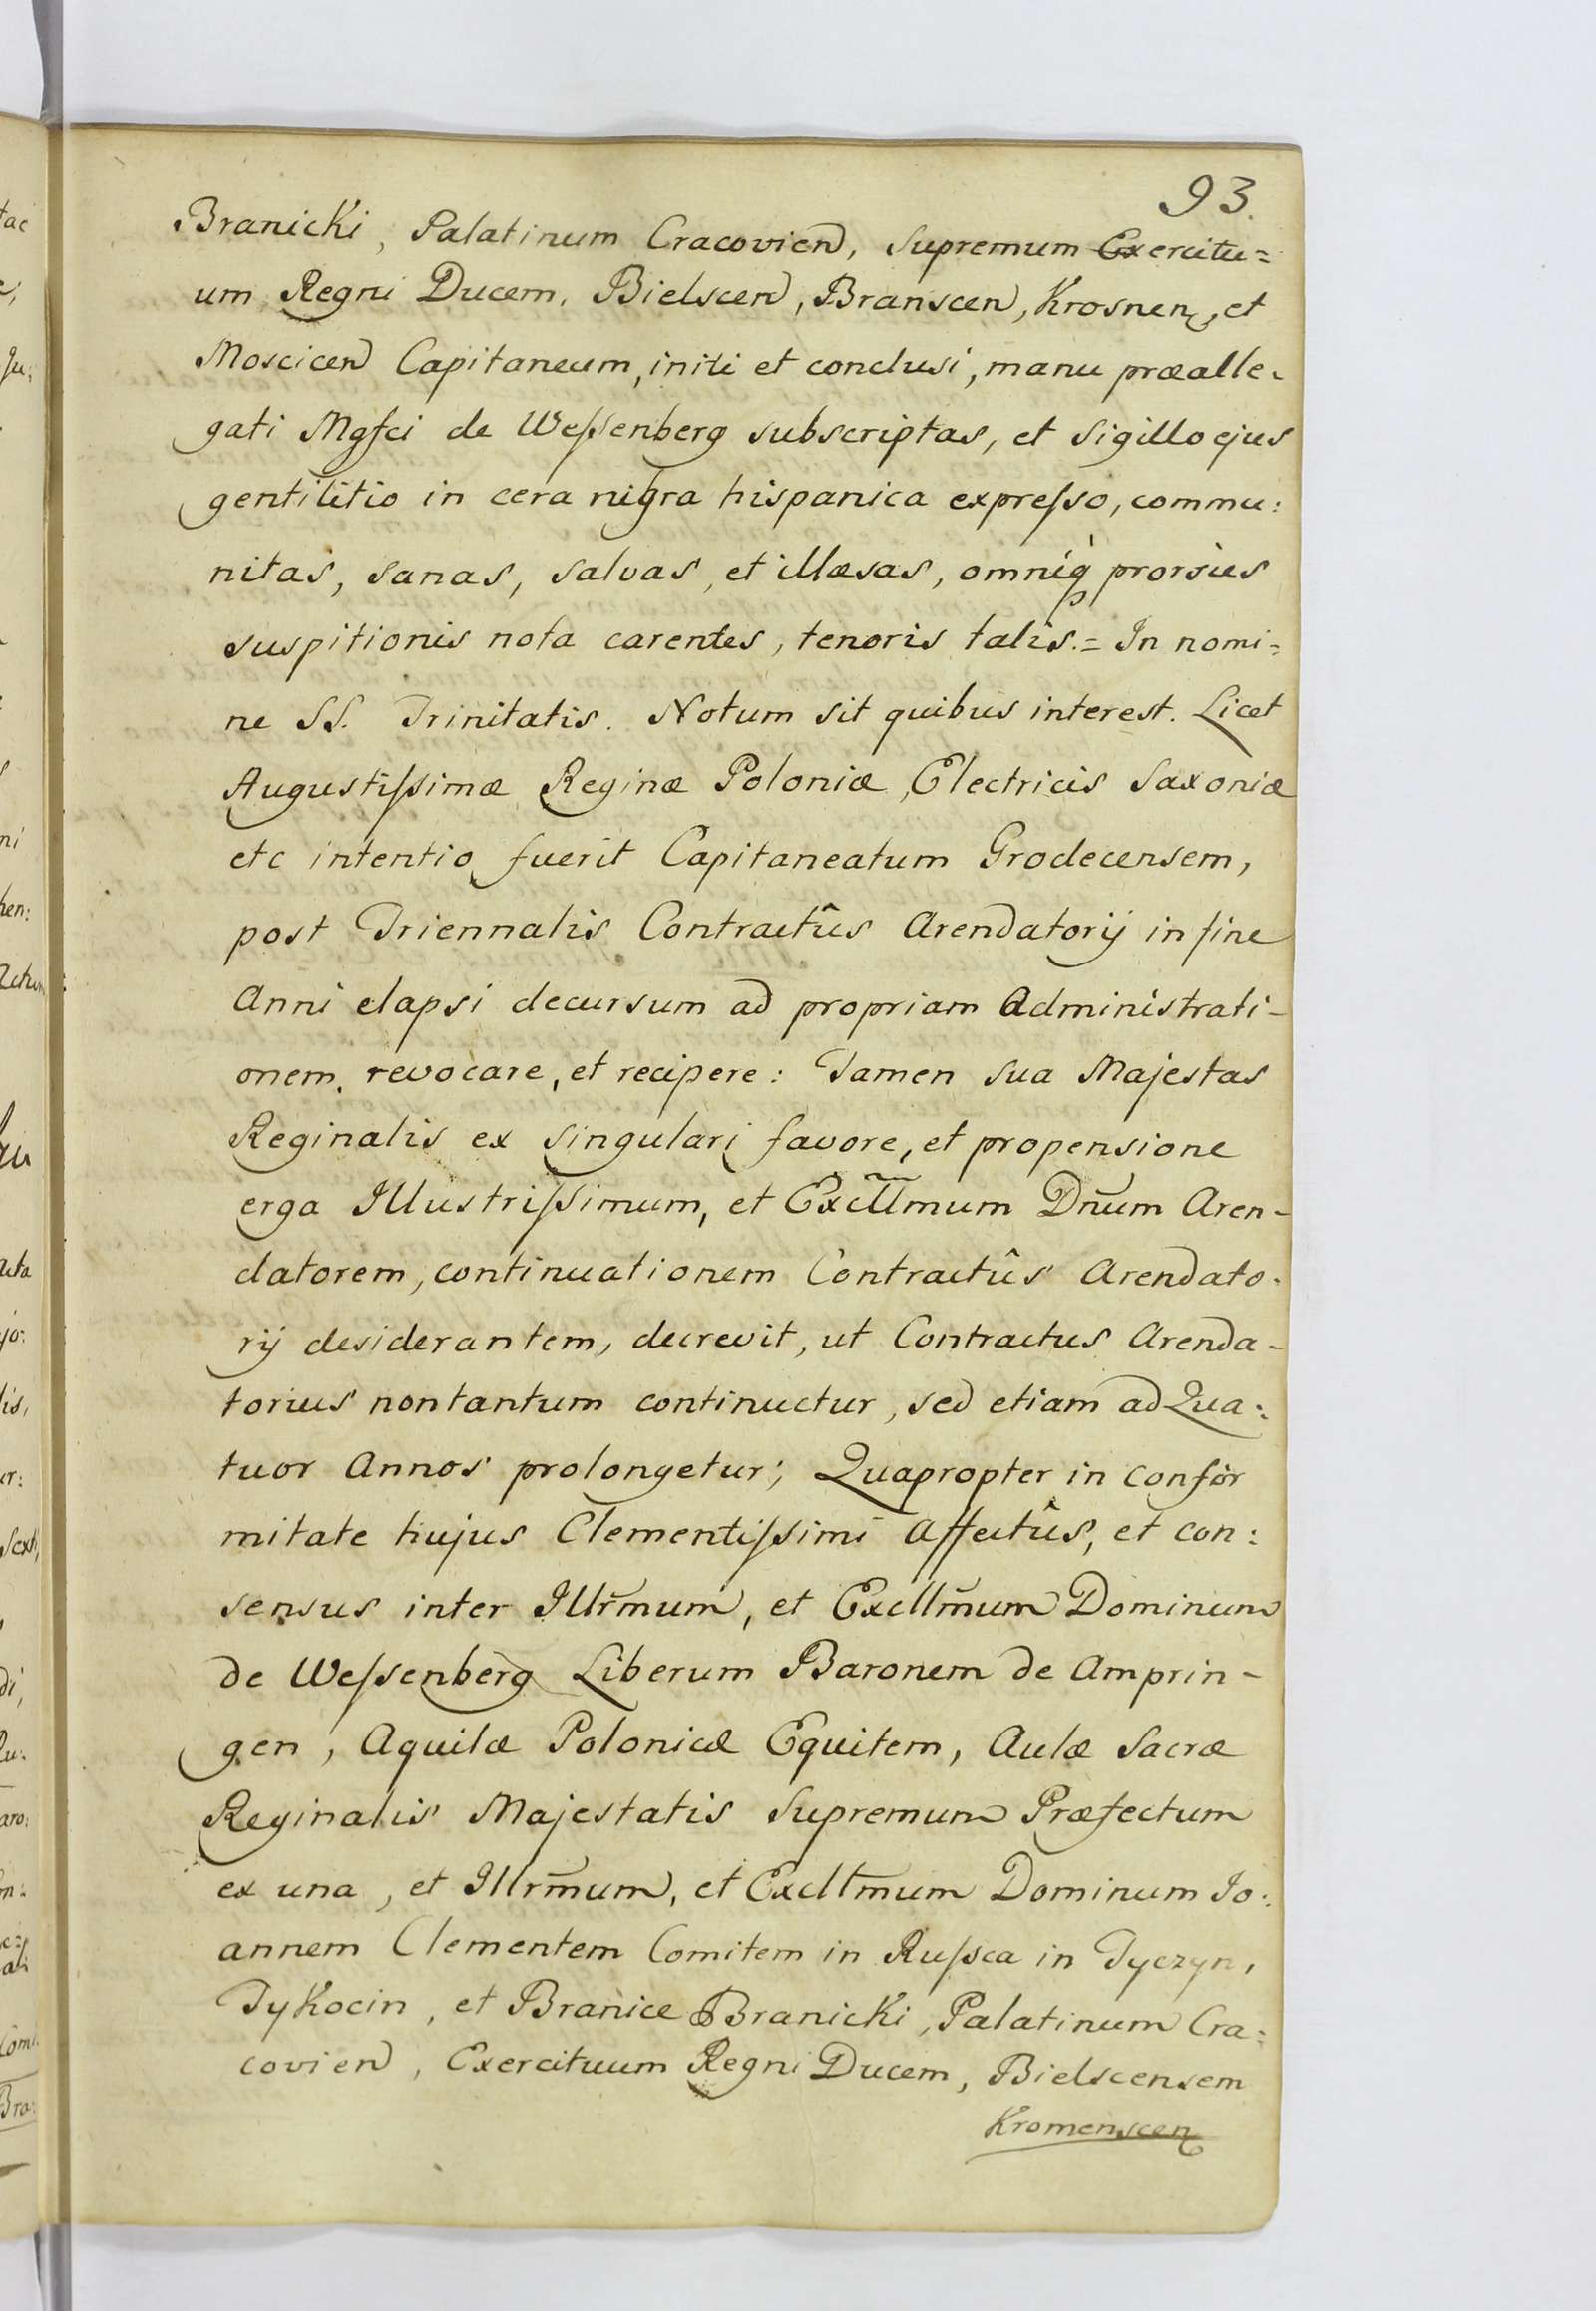 93.
Branicki, Palatinum Cracovien, supremum Exercitu=
um Regni Ducem, Bielscen, Branscen, Krosnen, et
Moscicen Capitaneum, initi et conclusi, manu præalle-
gati Mgfci de Weſsenberg subscriptas, et sigillo ejus
gentilitio in cera nigra hispanica expreſso, commu:
nitas, sanas, salvas, et illæsas, omniq̀ prorsùs
suspitionis nota carentes, tenoris talis.= In nomi=
ne SS. Trinitatis. Notum sit quibus interest. Licet
Augustiſsimæ Reginæ Poloniæ, Electricis Saxoniæ
etc intentio fuerit Capitaneatum Grodecensem,
post Triennalis Contractûs Arendatorij in fine
Anni elapsi decursum ad propriam Administrati-
onem revocare, et recipere: Tamen Sua Majestas
Reginalis ex singulari favore, et propensione
erga Illustriſsimum, et Excll̃mum Dñum Aren-
datorem, continuationem Contractûs Arendato-
rij desiderantem, decrevit, ut Contractus Arenda-
torius non tantum continuetur, sed etiam ad Qua:
tuor Annos prolongetur; Quapropter in confor
mitate hujus Clementiſsimi Affectûs, et con:
sensus inter Illr̃mum, et Excllm̃um Dominum
de Weſsenberg Liberum Baronem de Amprin-
gen, Aquilæ Polonicæ Equitem, Aulæ Sacræ
Reginalis Majestatis Supremum Præfectum
ex una, et Illrm̃um, et Excllm̃um Dominum Jo:
annem Clementem Comitem in Ruſsca in Tyczyn,
Tykocin, et Branice Branicki, Palatinum Cra:
covien, Exercituum Regni Ducem, Bielscensem
Kromenscen